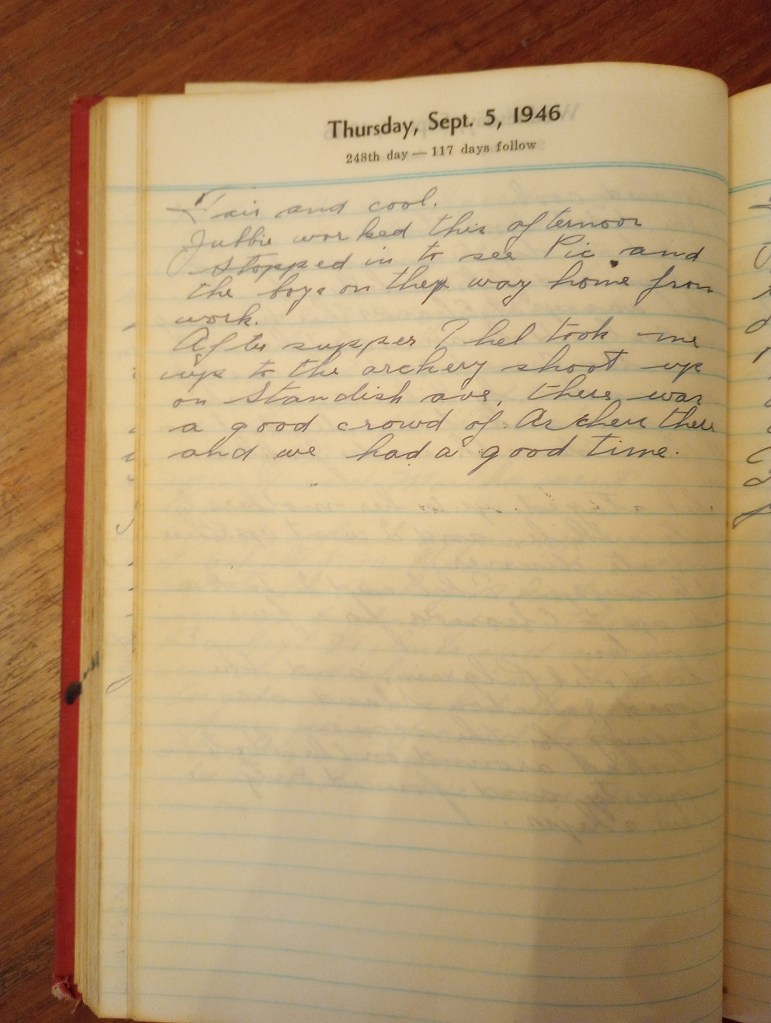 Thursday, Sept. 5, 1946
248th day — 117 days follow
Fair and cool.
Jubbie worked this afternoon
stopped in to see Pic and
the boys on they way home from
work.
After supper Thel took me
up to the archery shoot up
on Standish ave, there was
a good crowd of Archers there
and we had a good time.